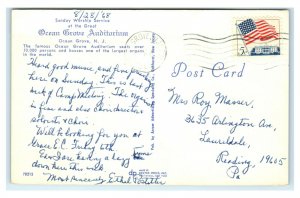 8/28/68
Sunday Worship Service
at the Great
Ocean Grove Auditorium
Ocean Grove, N. J.
The famous Ocean Grove Auditorium seats over
10,000 persons and houses one of the largest organs
in the world.
Heard good music, and fine
here on Sunday. This is last
wk of Camp Meeting. The organist
is fine and also choir director
soloists & choir.
Will be looking for you at
Grace E.C. Friday 6th.
are having a happy time
down here this wk.
Most Sincerely, Ethel
Post Card
Mrs Roy Mauser,
3635 Arlington Ave
Laureldale,
Reading, 19605
Pa
5c